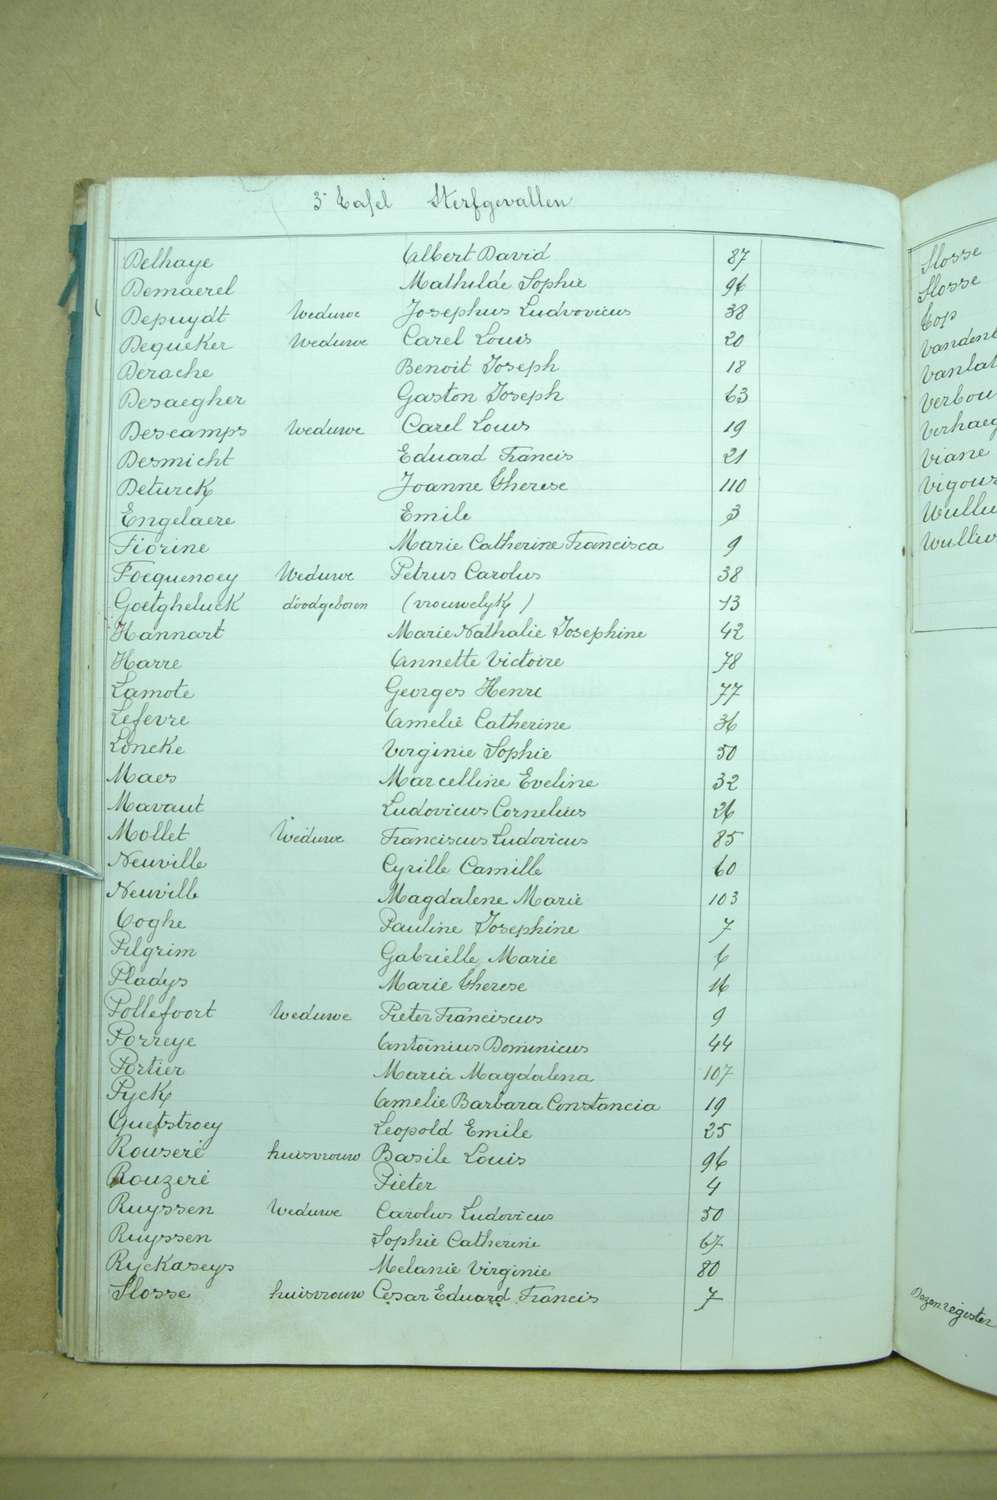 3e Tafel Sterfgevallen
Delhaye Albert David 87
Demaerel Mathilde Sophie 96
Depuydt Weduwe Josephus Ludvovicus 38
Dequeker Weduwe Carel Louis 20
Derache Benoit Joseph 18
Desaegher Gaston Joseph 63
Descamps Weduwe Carel Louis 19
Desmicht Eduard Francis 21
Deturck Joanne Therese 110
Engelaere Emile 3
Fiorine Marie Catherine Francisca 9
Focquenoey Weduwe Petrus Carolus 38
Goetgheluck doodgeboren (vrouwelyk) 13
Hannart Marie Nathalie Josephine 42
Harre Annette Victoire 78
Lamote Georges Henri 77
Lefevre Amelie Catherine 36
Loncke Virginie Sophie 50
Maes Marcelline Eveline 32
Mavaut Ludovicus Cornelius 26
Mollet Weduwe Franciscus Ludovicus 85
Neuville Cyrille Camille 60
Neuville Magdalene Marie 103
Ooghe Pauline Josephine 7
Pilgrim Gabrielle Marie 6
Pladys Marie Therese 16
Pollefoort Weduwe Pieter Franciscus 9
Porreye Antoinius Dominicus 44
Portier Maria Magdalena 107
Pyck Amelie Barbara Constancia 19
Quetstroey Leopold Emile 25
Rouseré huisvrouw Basile Louis 96
Rouzeré Pieter 4
Ruyssen Weduwe Carolus Ludovicus 50
Ruyssen Sophie Catherine 67
Ryckaseys Melanie Virginie 80
Slosse huisvrouw Cesar Eduard Francis 7
Slosse
Slosse
Top
Verbou
Verhaeg
Viane
Vigour
Wullu